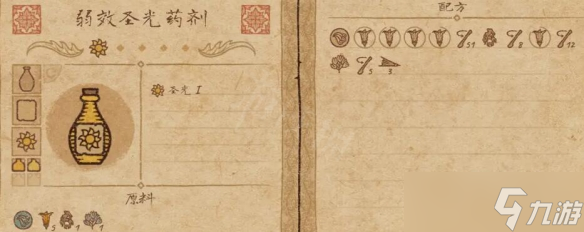 弱效圣光药剂
圣光 I
原料
5 1 1
配方
31 8 12
5 3
九游